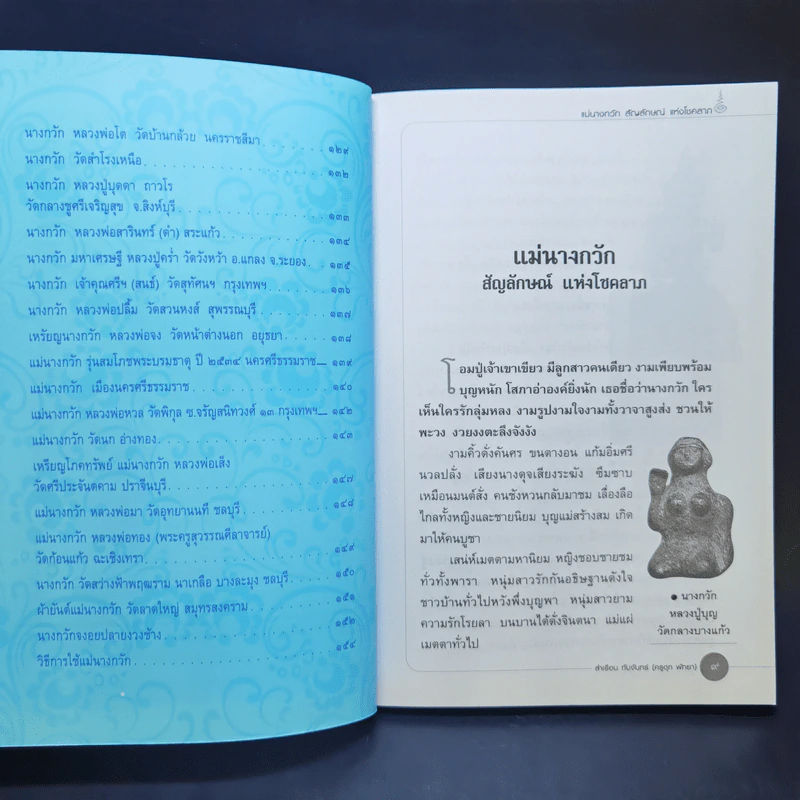 นางกวัก หลวงพ่อโต วัดบ้านกล้วย นครราชสีมา ๑๒๙
นางกวัก วัดสำโรงเหนือ ๑๓๒
นางกวัก หลวงปู่บุดดา ถาวโร
วัดกลางชูศรีเจริญสุข จ.สิงห์บุรี ๑๓๓
นางกวัก หลวงพ่อสารินทร์ (ดำ) สระแก้ว ๑๓๔
นางกวัก มหาเศรษฐี หลวงปู่คร่ำ วัดวังหว้า อ.แกลง จ.ระยอง ๑๓๕
นางกวัก เจ้าคุณศรีฯ (สนธ์) วัดสุทัศนฯ กรุงเทพฯ ๑๓๖
นางกวัก หลวงพ่อปลื้ม วัดสวนหงส์ สุพรรณบุรี ๑๓๗
เหรียญนางกวัก หลวงพ่อจง วัดหน้าต่างนอก อยุธยา ๑๓๘
แม่นางกวัก รุ่นสมโภชพระบรมธาตุ ปี ๒๕๓๔ นครศรีธรรมราช ๑๓๙
แม่นางกวัก เมืองนครศรีธรรมราช ๑๔๐
แม่นางกวัก หลวงพ่อหวล วัดพิกุล ซ.จรัญสนิทวงศ์ ๑๓ กรุงเทพฯ ๑๔๒
แม่นางกวัก วัดนก อ่างทอง ๑๔๓
เหรียญโภคทรัพย์ แม่นางกวัก หลวงพ่อเส็ง
วัดศรีประจันตคาม ปราจีนบุรี ๑๔๗
แม่นางกวัก หลวงพ่อมา วัดอุทยานนที ชลบุรี ๑๔๘
แม่นางกวัก หลวงพ่อทอง (พระครูสุวรรณศีลาจารย์)
วัดก้อนแก้ว ฉะเชิงเทรา ๑๔๙
นางกวัก วัดสว่างฟ้าพฤฒาราม นาเกลือ บางละมุง ชลบุรี ๑๕๐
ผ้ายันต์แม่นางกวัก วัดลาดใหญ่ สมุทรสงคราม ๑๕๑
นางกวักจงอยปลายงวงช้าง ๑๕๒
วิธีการใช้แม่นางกวัก ๑๕๔
แม่นางกวัก สัญลักษณ์ แห่งโชคลาภ
แม่นางกวัก
สัญลักษณ์ แห่งโชคลาภ
โอมปู่เจ้าเขาเขียว มีลูกสาวคนเดียว งามเพียบพร้อม
บุญหนัก โสภาอ่าองค์ยิ่งนัก เธอชื่อว่านางกวัก ใคร
เห็นใครรักลุ่มหลง งามรูปงามใจงามทั้งวาจาสูงส่ง ชวนให้
พะวง งวยงงตะลึงจังงัง
งามคิ้วดั่งคันศร ขนตางอน แก้มอิ่มศรี
นวลปลั่ง เสียงนางดุจเสียงระฆัง ซึมซาบ
เหมือนมนต์สั่ง คนชังหวนกลับมาชม เลื่องลือ
ไกลทั้งหญิงและชายนิยม บุญแม่สร้างสม เกิด
มาให้คนบูชา
เสน่ห์เมตตามหานิยม หญิงชอบชายชม
ทั่วทั้งพารา หนุ่มสาวรักกันอธิษฐานดังใจ
ชาวบ้านทั่วไปหวังพึ่งบุญพา หนุ่มสาวยาม
ความรักโรยลา บนบานได้ดั่งจินตนา แม่แผ่
เมตตาทั่วไป
● นางกวัก
หลวงปู่บุญ
วัดกลางบางแก้ว
สำเรียน ทับจันทร์ (ครูดุก พัทยา) ๙